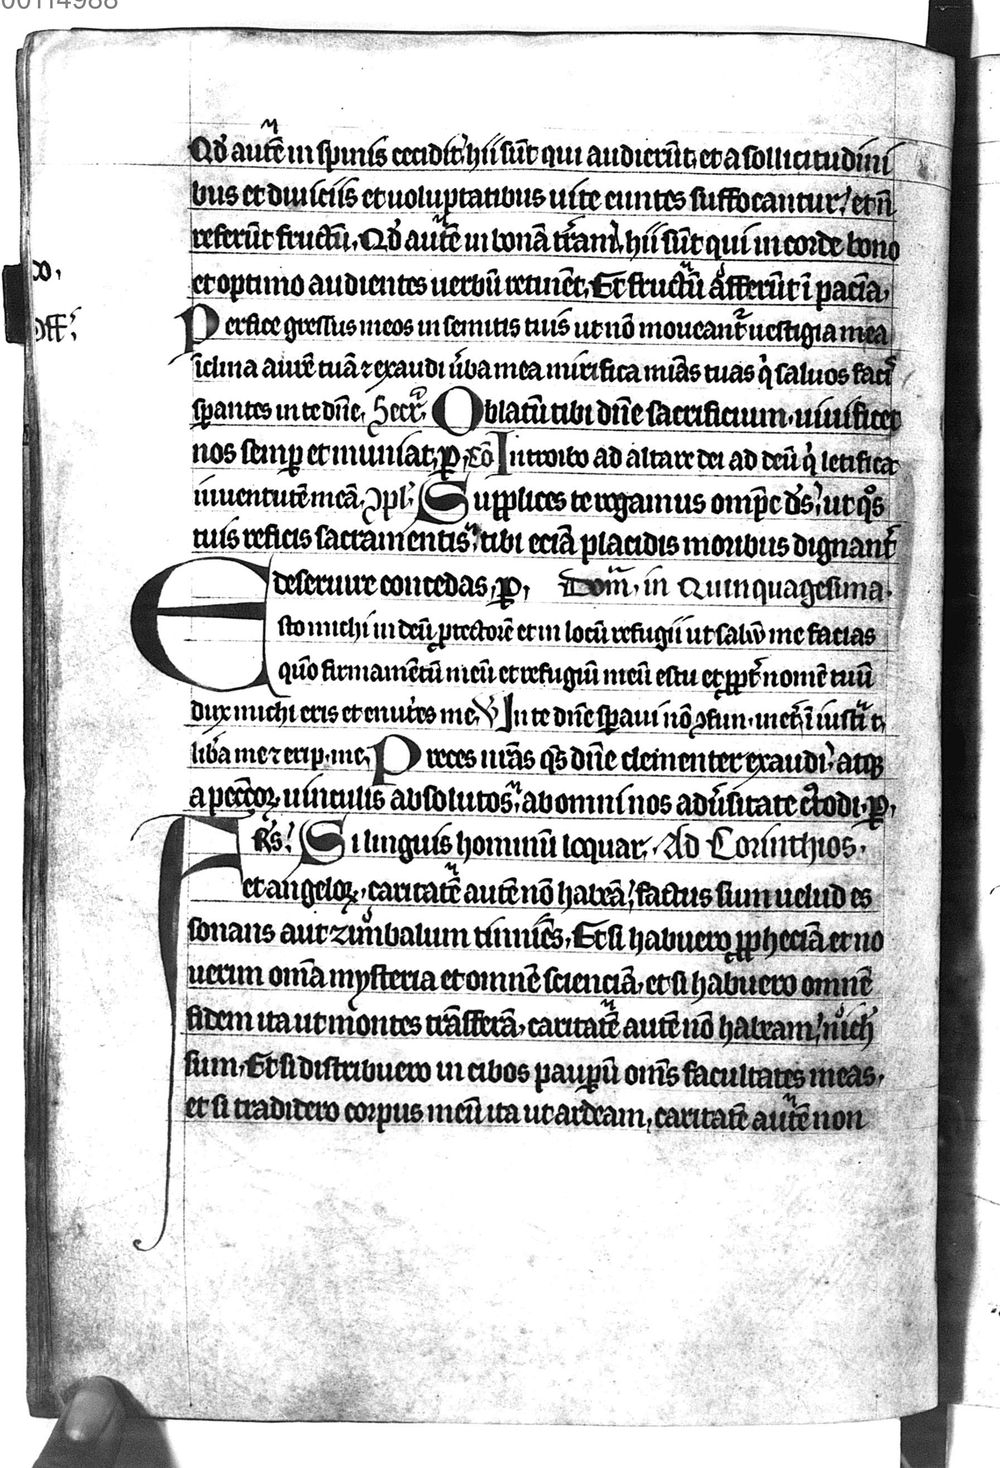 00114988
Qd̉ aut̃e in spinis cecidit. hii sũt qui audierũt. et a sollicitudini
bus et diuiciis et uoluptatibus uite euntes suffocantur. et ñ
referũt fructũ. Qd̉ aut̃e in bonã t̃ram. hii sũt qui in corde bono
co.
et optimo audientes uerbũ retinẽt. Et fructũ afferũt ĩ paciã.
off̃.
Perfice gressus meos in semitis tuis ut nõ moueant̃ uestigia mea
ĩclina aurẽ tuã ⁊ exaudi ũba mea mirifica mĩas tuas q̉ saluos facĩ
sp̱antes in te dñe. Secr̃. Oblatũ tibi dñe sacrificium. uiuificet
nos semp̱ et muniat. p̱. cõ Introibo ad altare dei ad deũ q̉ letificat
iuuentutẽ meã. ꝯpl̃. Supplices te rogamus omp̃c ds̃. ut q̊s
tuis reficis sacramentis. tibi eciã placidis moribus dignant̃
deseruire concedas. p̱. Dom̃. in Quinquagesima.
Esto michi in deũ ꝓtectorẽ et in locũ refugii ut saluũ me facias
qm̃o firmamẽtũ meũ et refugiũ meũ es tu et ꝓpt̃ nomẽ tuũ
dux michi eris et enut̃es me. V̉ In te dñe sp̱aui nõ ꝯfun. in et̃. ĩ iustĩ t.
lib̃a me ⁊ erip. me. Preces nr̃as q̃s dñe clementer exaudi. atqꝫ
a pecc̃oꝝ uinculis absolutos. ab omni nos adủsitate c̉todi. p̱.
Frs̃. Si linguis hominũ loquar. Ad Corinthios.
et angeloꝝ. caritatẽ autẽ nõ habeã. factus sum uelud es
sonans aut zimbalum tinniẽs. Et si habuero ꝓpheciã et no
uerim om̃ia mysteria et omnẽ scienciã. et si habuero omnẽ
fidem ita ut montes trãsferã. caritatẽ autẽ nõ habeam. nich̉
sum. Et si distribuero in cibos paup̱ũ om̃s facultates meas.
et si tradidero corpus meũ ita ut ardeam. caritatẽ autẽ non